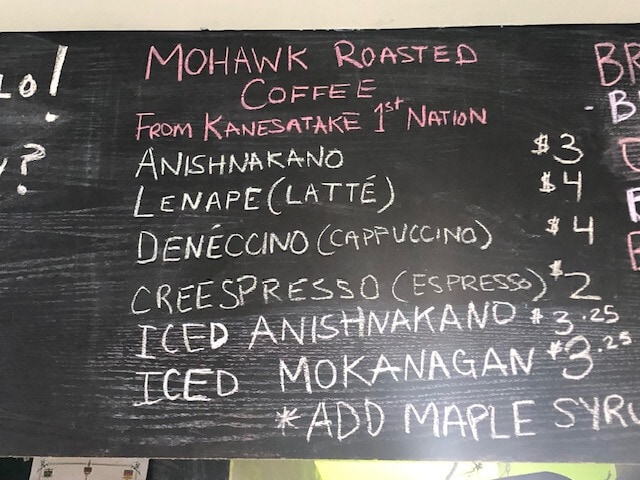 MOHAWK ROASTED
COFFEE
FROM KANESATAKE 1st NATION
ANISHNAKANO $3
LENAPE (LATTÉ) $4
DENÉCCINO (CAPPUCCINO) $4
CREESPRESSO (ESPRESSO) $2
ICED ANISHNAKANO $3.25
ICED MOKANAGAN $3.25
*ADD MAPLE